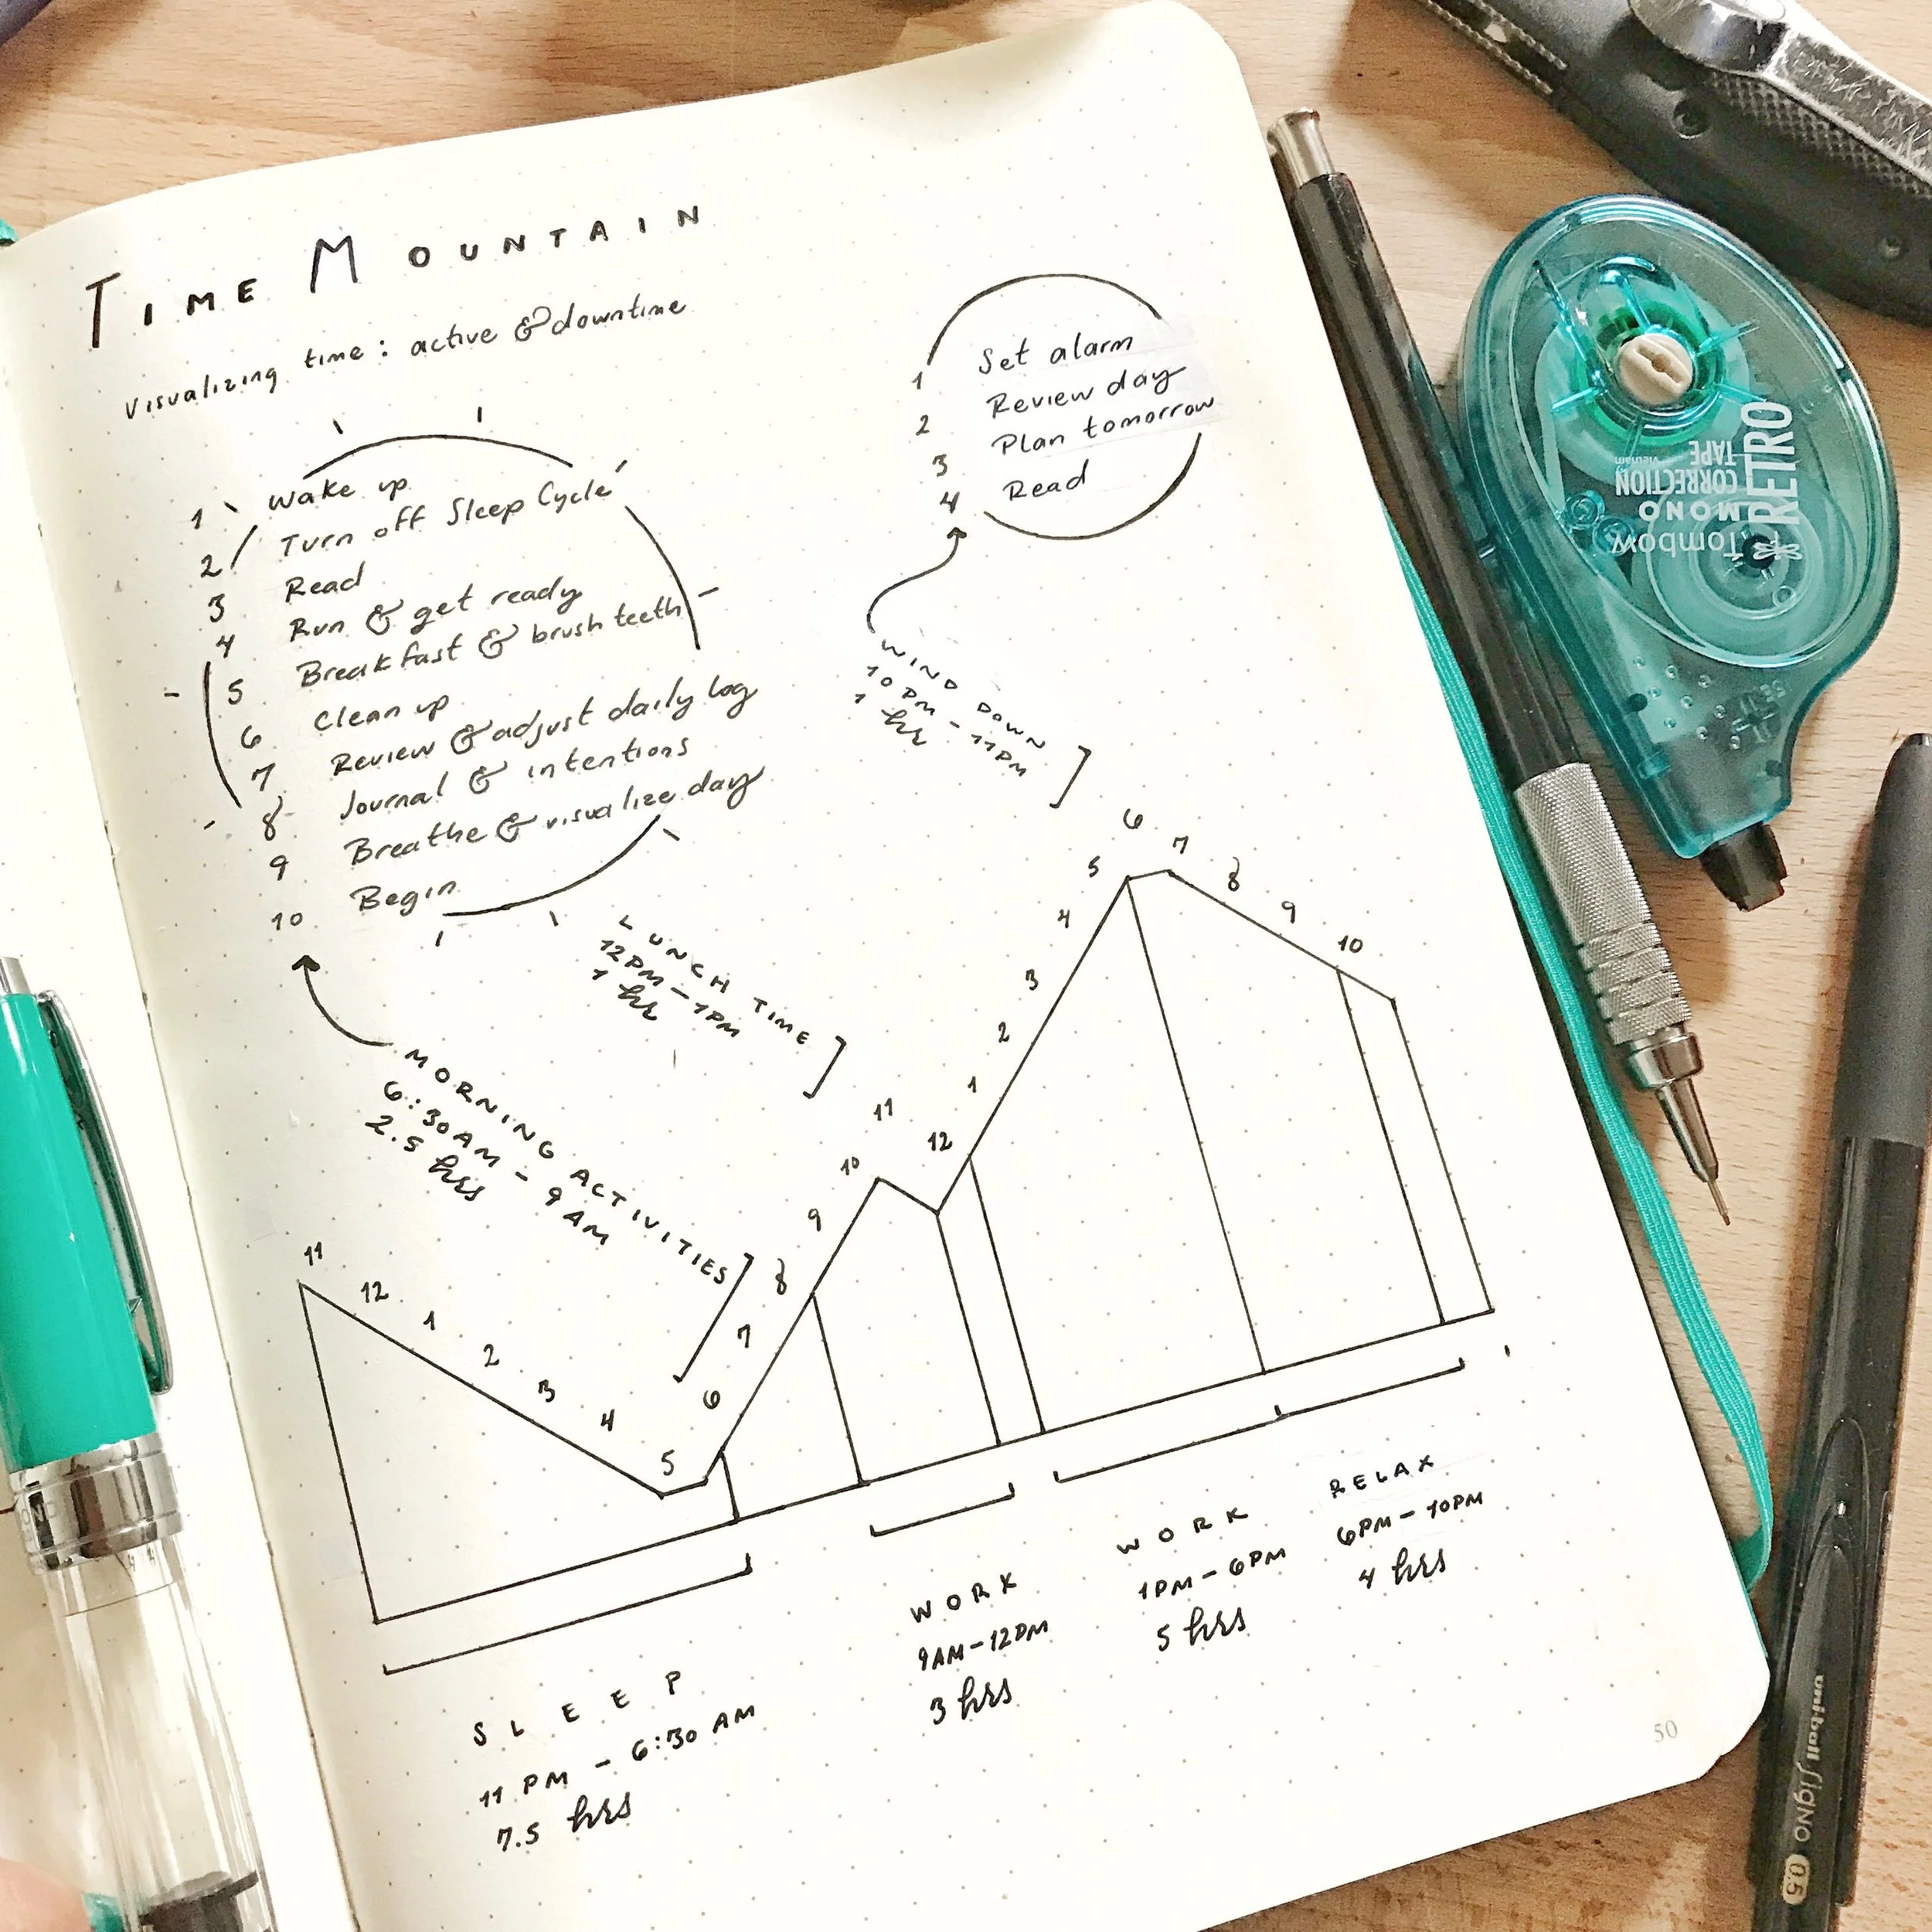 TIME MOUNTAIN
Visualizing time: active & downtime
1 Wake up
2 Turn off Sleep Cycle
3 Read
4 Run & get ready
5 Breakfast & brush teeth
6 Clean up
7 Review & adjust daily log
8 Journal & intentions
9 Breathe & visualize day
10 Begin
1 Set alarm
2 Review day
3 Plan tomorrow
4 Read
WIND DOWN
10PM - 11PM
1 hr
LUNCH TIME
12PM - 1PM
1 hr
MORNING ACTIVITIES
6:30AM - 9AM
2.5 hrs
11 12 1 2 3 4 5 6 7 8 9 10 11 12 1 2 3 4 5 6 7 8 9 10
SLEEP
11 PM - 6:30 AM
7.5 hrs
WORK
9AM - 12PM
3 hrs
WORK
1PM - 6PM
5 hrs
RELAX
6PM - 10PM
4 hrs
50
Tombow
MONO
CORRECTION
TAPE
Vietnam
RETRO
uni-ball Signo 0.5